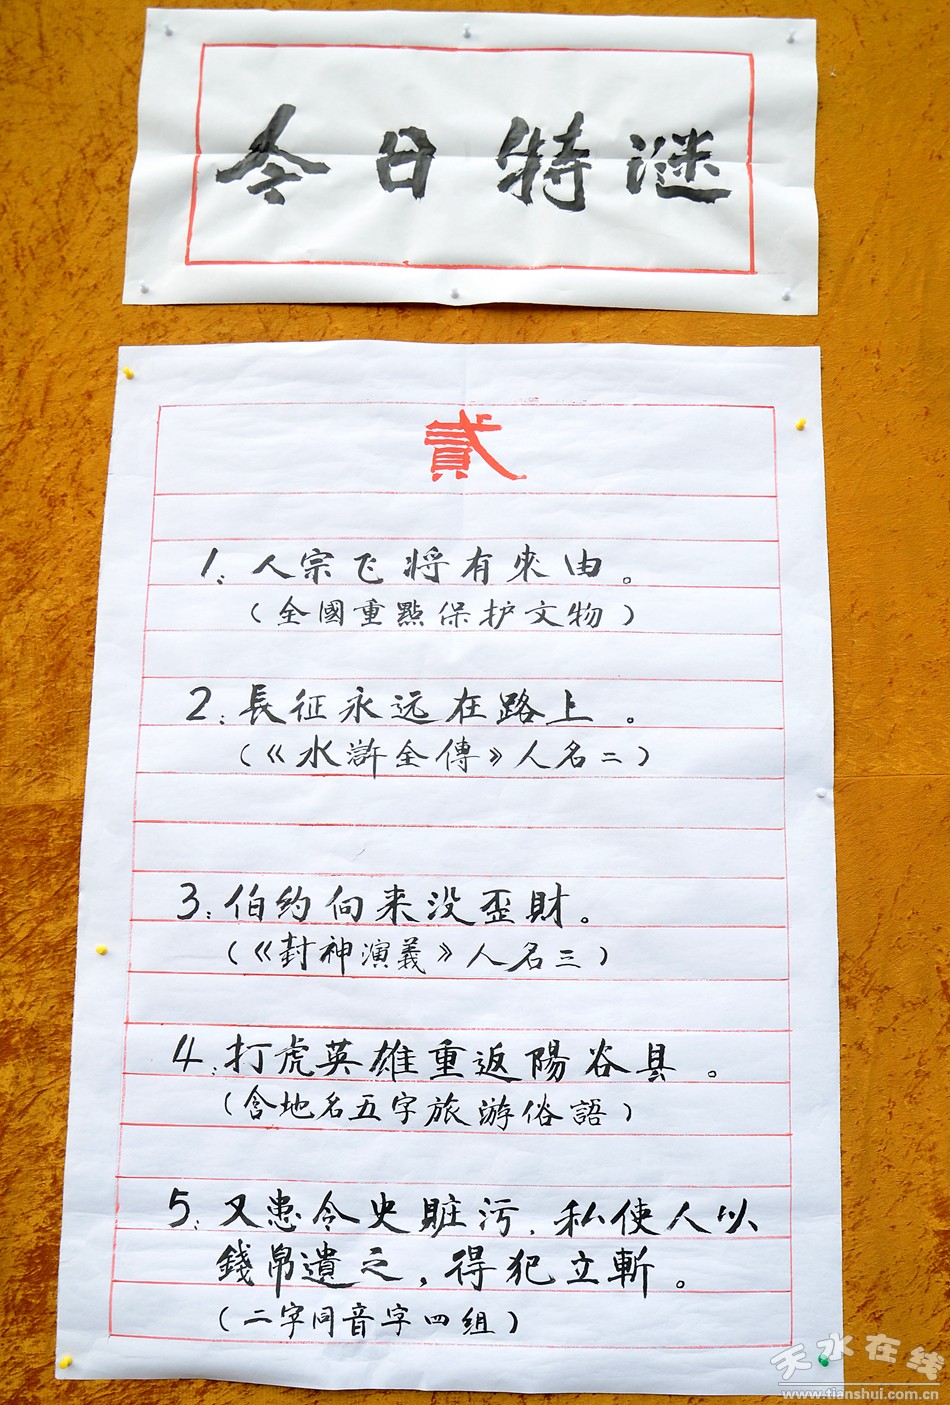 今日特谜
貳
1、人宗飞将有來由。
（全國重點保护文物）
2、長征永远在路上。
（《水滸全傳》人名二）
3、伯约向来没歪財。
（《封神演義》人名三）
4、打虎英雄重返陽谷县。
（含地名五字旅游俗語）
5、又患令史賍污，私使人以
錢帛遺之，得犯立斬。
（二字同音字四组）
天水在线
www.tianshui.com.cn